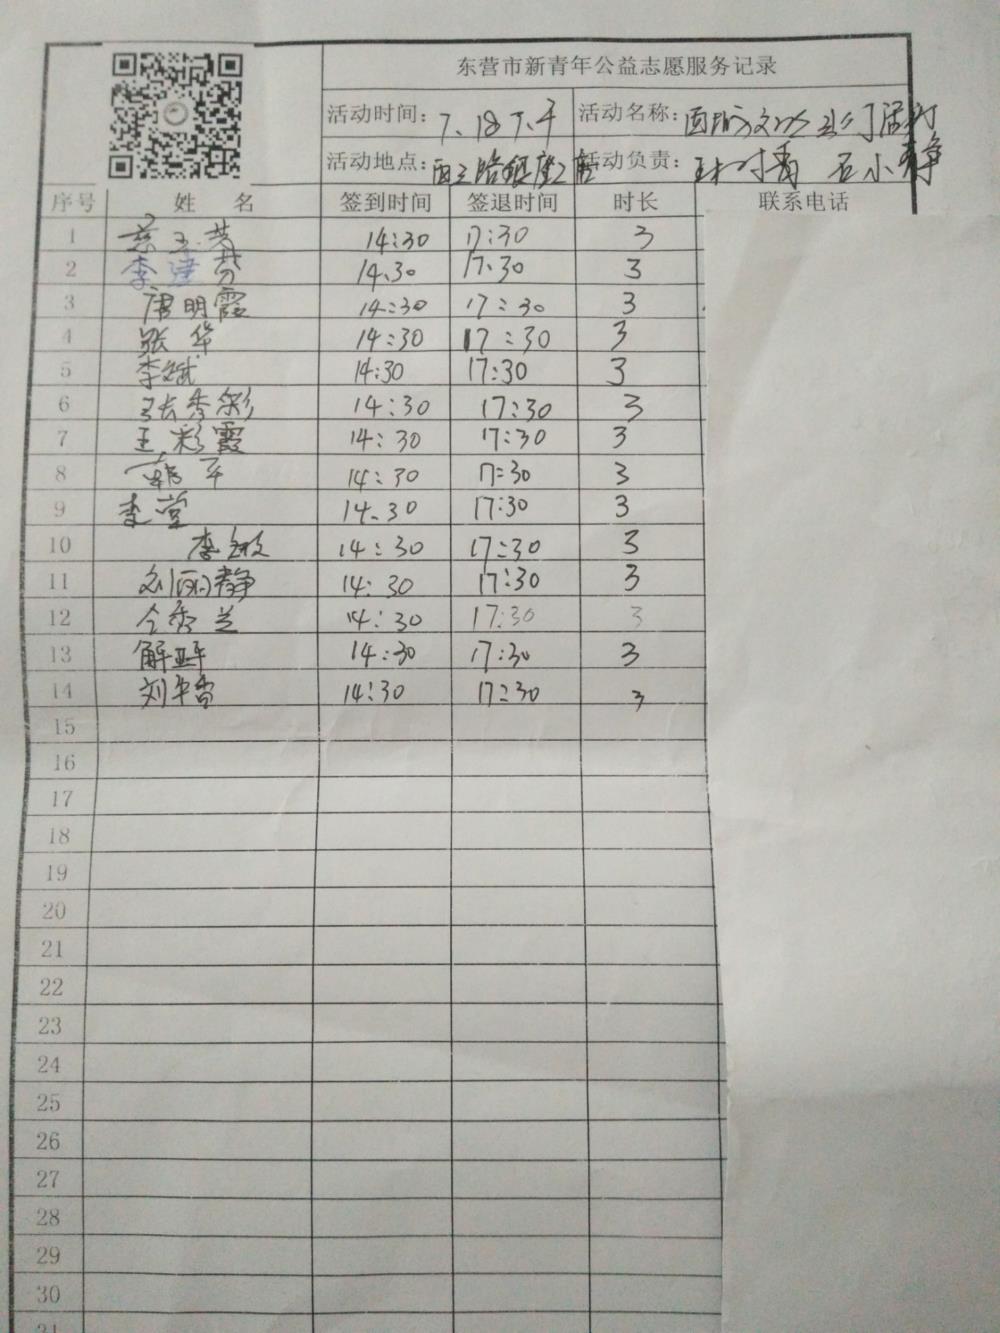 东营市新青年公益志愿服务记录
活动时间: 7.18 下午 活动名称:
活动地点: 活动负责: 石小静
序号 姓 名 签到时间 签退时间 时长 联系电话
1 14:30 17:30 3
2 李建芬 14.30 17.30 3
3 唐明霞 14:30 17:30 3
4 张华 14:30 17:30 3
5 李斌 14:30 17:30 3
6 张秀彩 14:30 17:30 3
7 王彩霞 14:30 17:30 3
8 韩平 14:30 17:30 3
9 李莹 14.30 17:30 3
10 李 14:30 17:30 3
11 刘丽静 14:30 17:30 3
12 仝秀兰 14:30 17:30 3
13 解 14:30 17:30 3
14 刘 14:30 17:30 3
15
16
17
18
19
20
21
22
23
24
25
26
27
28
29
30
31